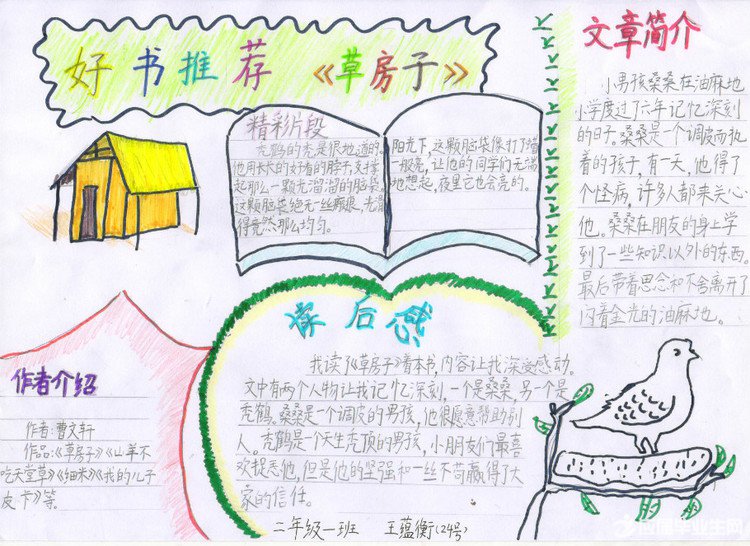 好书推荐 《草房子》
精彩片段
秃鹤的秃是很地道的。
他用长长的好看的脖子,支撑
起那么一颗光溜溜的脑袋。
这颗脑袋绝无一丝瘢痕,光滑
得竟然那么均匀。
阳光下,这颗脑袋像打了蜡
一般亮,让他的同学们无端
地想起,夜里它也会亮的。
文章简介
小男孩桑桑在油麻地
小学度过了六年记忆深刻
的日子。桑桑是一个调皮而执
着的孩子,有一天,他得了
个怪病,许多人都来关心
他。桑桑在朋友的身上学
到了一些知识以外的东西。
最后带着思念和不舍离开了
闪着金光的油麻地。
作者介绍
作者:曹文轩
作品:《草房子》《山羊不
吃天堂草》《细米》《我的儿子
皮卡》等。
读后感
我读了《草房子》着本书,内容让我深受感动。
文中有两个人物让我记忆深刻,一个是桑桑,另一个是
秃鹤。桑桑是一个调皮的男孩,他很愿意帮助别
人。秃鹤是个天生秃顶的男孩,小朋友们最喜
欢捉弄他,但是他的坚强和一丝不苟赢得了大
家的信任。
二年级一班 王蕴衡(24号)